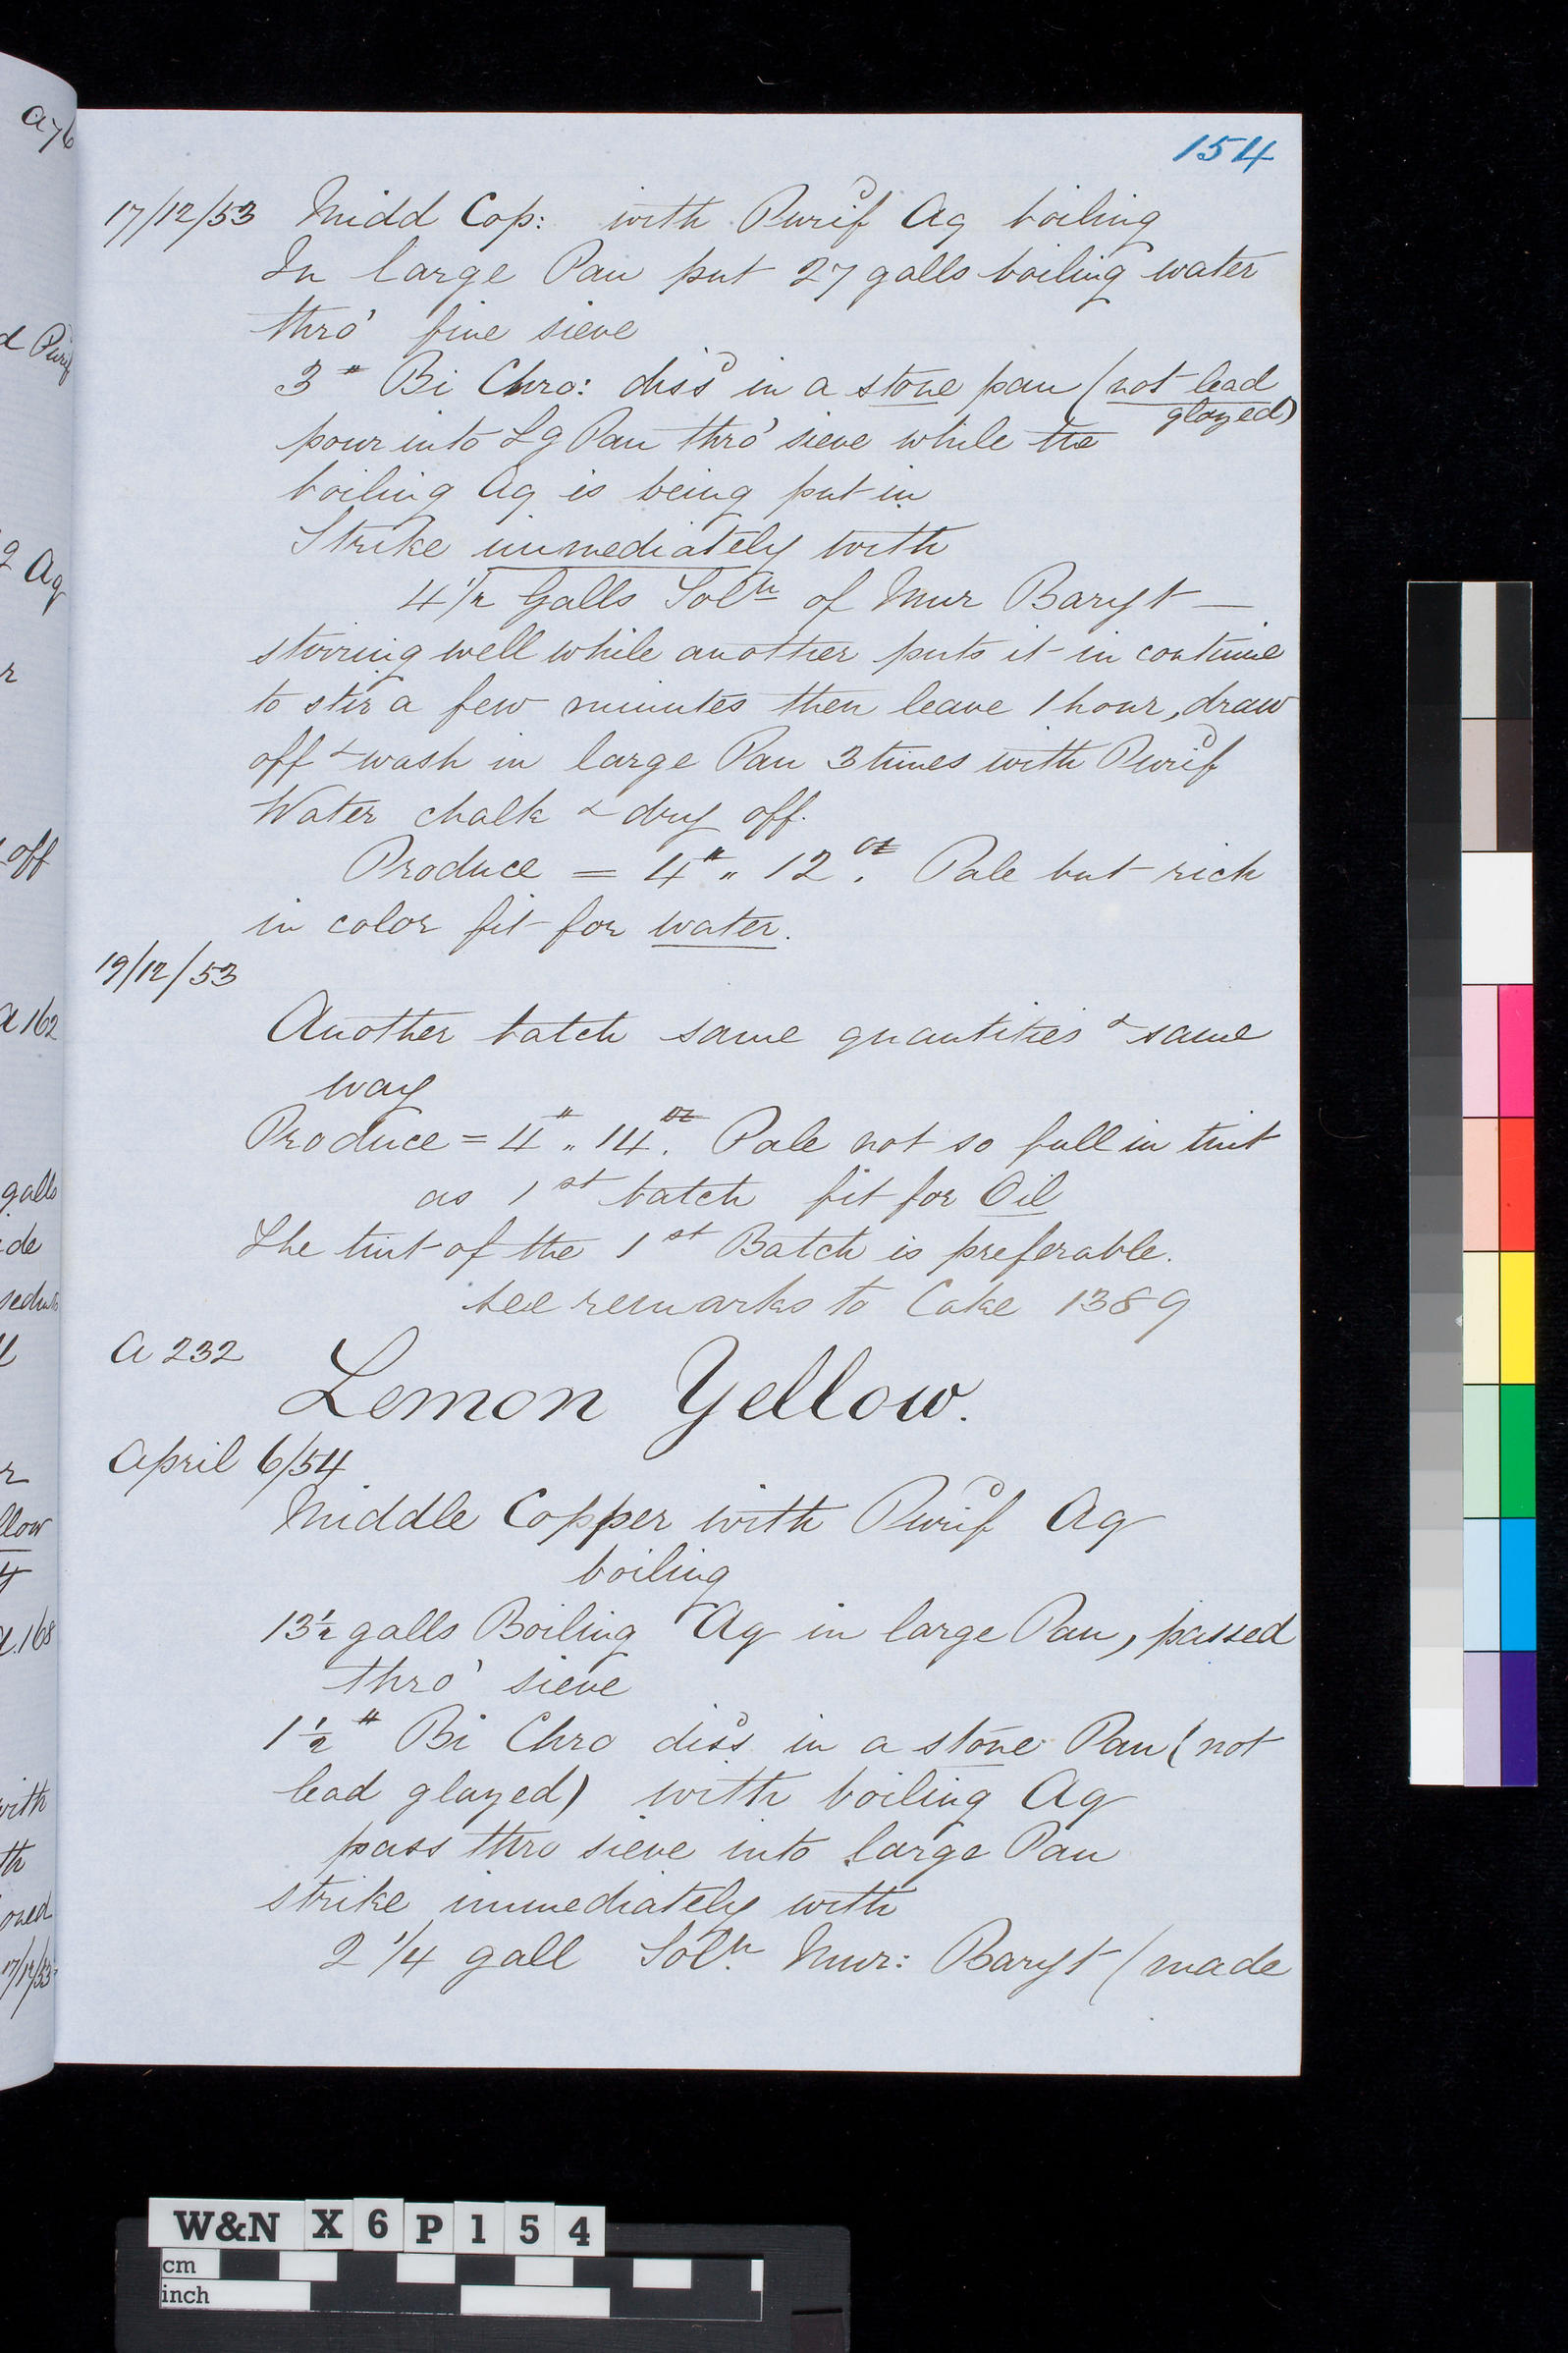 154
17/12/53 Midd Cop: with Purifd Aq boiling
In large Pan put 27 galls boiling water
thro' fine sieve
3 # Bi Chro: dissd in a stone pan (not lead
glazed)
pour into Lg Pan thro' sieve while the
boiling Aq is being put in
Strike immediately with
4 1/2 Galls Soln of Mur Baryt —
stirring well while another puts it in continue
to stir a few minutes then leave 1 hour, draw
off & wash in large Pan 3 times with Purifd
Water chalk & dry off.
Produce = 4 # " 12 oz. Pale but rich
in color fit for water.
19/12/53
Another batch same quantities & same
way
Produce = 4 # " 14 oz. Pale not so full in tint
as 1st batch fit for Oil
The tint of the 1st Batch is preferable.
see remarks to Cake 1389
A 232
Lemon Yellow.
April 6/54
Middle Copper with Purifd Aq
boiling
13 1/2 galls Boiling Aq in large Pan, passed
thro' sieve
1 1/2 # Bi Chro dissd in a stone Pan (not
lead glazed) with boiling Aq
pass thro sieve into large Pan
strike immediately with
2 1/4 gall Soln Mur: Baryt (made
a76
d Purif
g Aq
r
off
a 162
galls
de
low
a.168
with
th
oned
17/12/53
W&N X 6 P 1 5 4
cm
inch